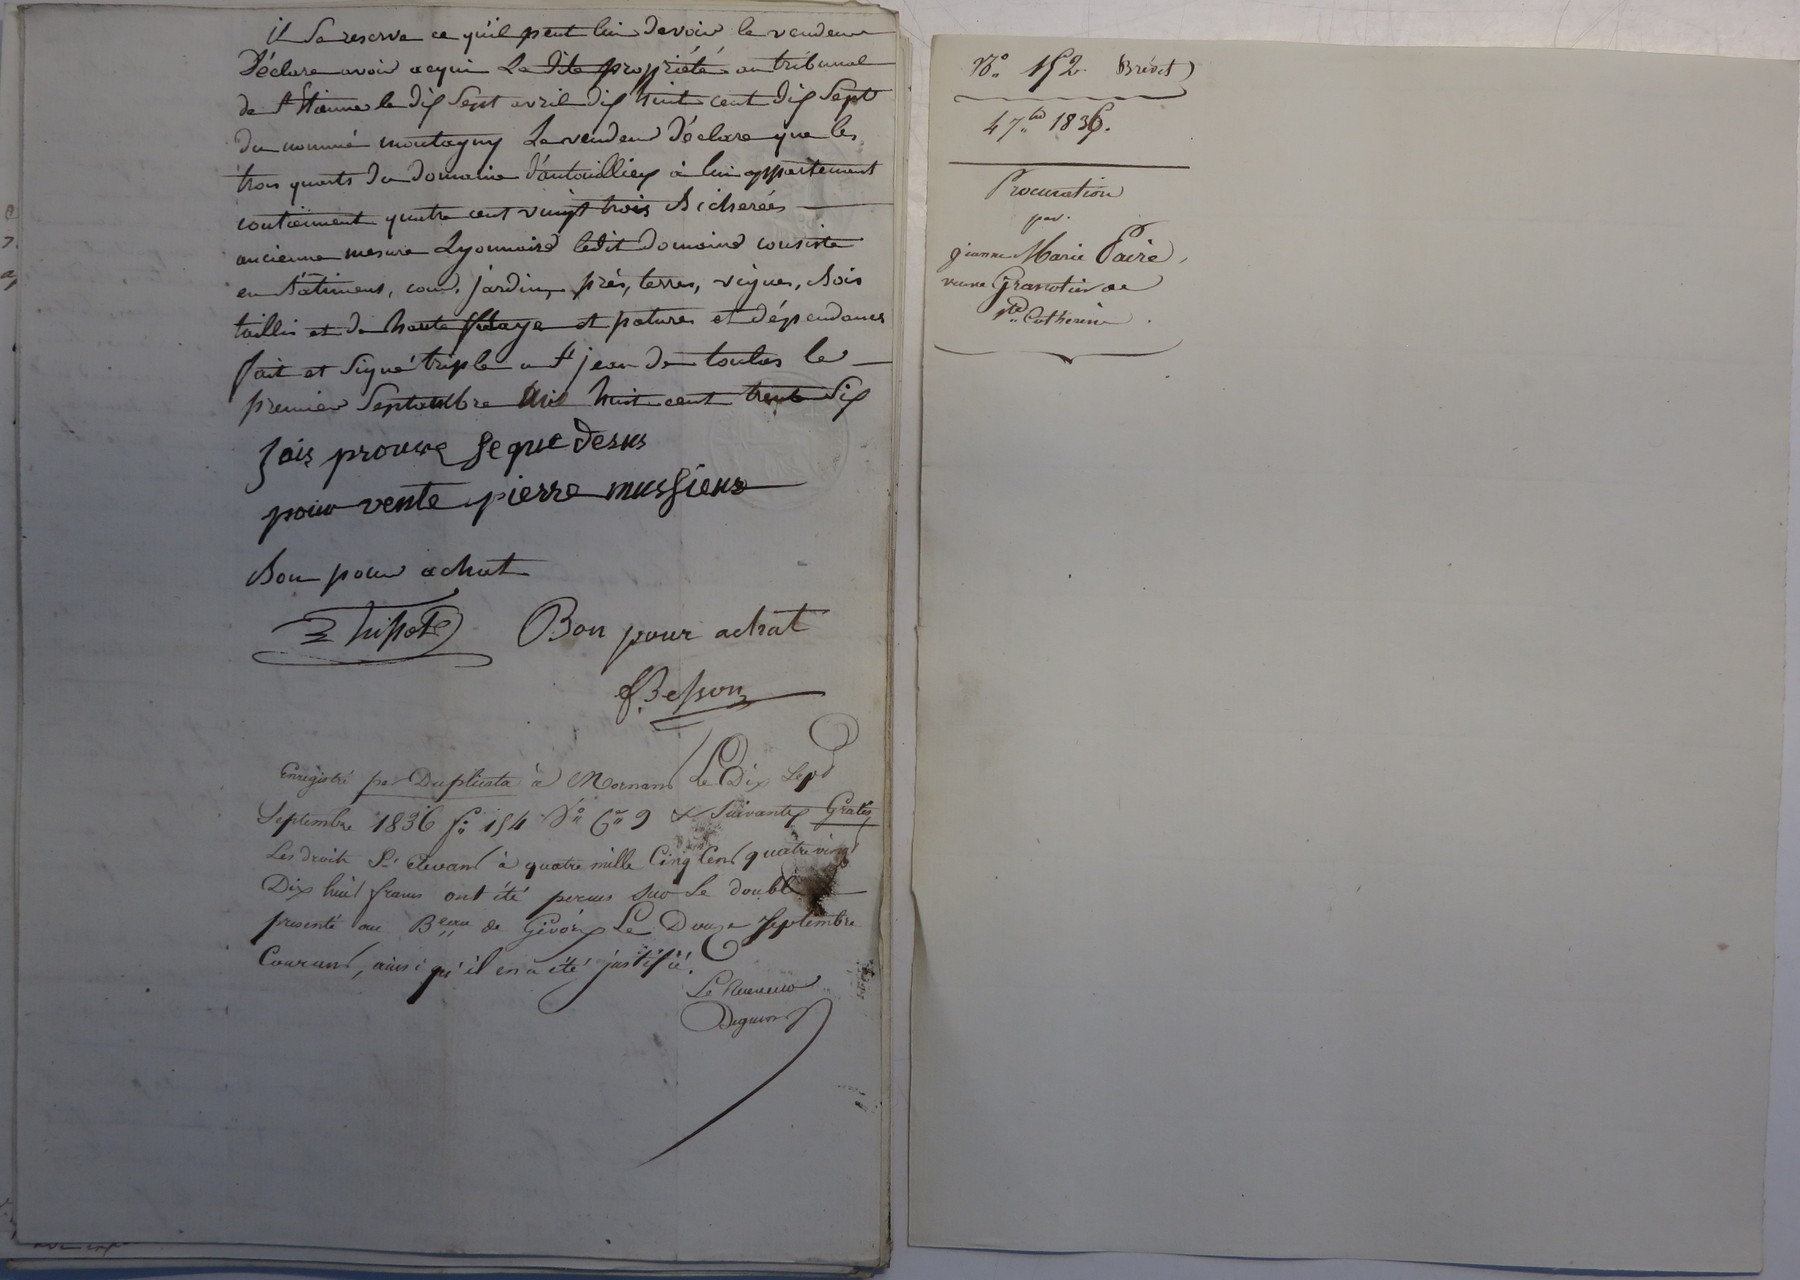 il se reserve ce qu'il peut lui devoir le vendeur
Déclare avoir acquis La dite propriété au tribunal
de St Etienne le dix Sept avril dix huit cent dix Sept
du nommé montagny Le vendeur Déclare que les
trois quarts du Domaine à lui appartenant
contiennent quatre cent vingt trois Bicherées
ancienne mesure Lyonnaise ledit Domaine consiste
en Bâtimens, cour, jardin, prés, terres, vignes, Bois
taillis et de haute futaye et patures et dépendances
fait et Signé triple a St jean de toulas le
premier Septembre dix huit cent trente Six
Jais prouve se que desus
pour vente pierre mussieux
Bon pour achat
Thissot Bon pour achat
Besson
Enregistré par Duplicata à Mornant Le Dix Sept
Septembre 1836 fo 154 Vo Ces 9 & Suivantes Gratis
Les droits S'elevant à quatre mille Cinq Cent quatre vingt
Dix huit francs ont été percus sur Le double
presenté au Beau de Givors Le Douze Septembre
Courant, ainsi qu'il en a été justifié.
Le Receveur
No 152 Brevet
4 7bre 1836.
Procuration
par
jeanne Marie Faire,
veuve de
Ste Catherine.